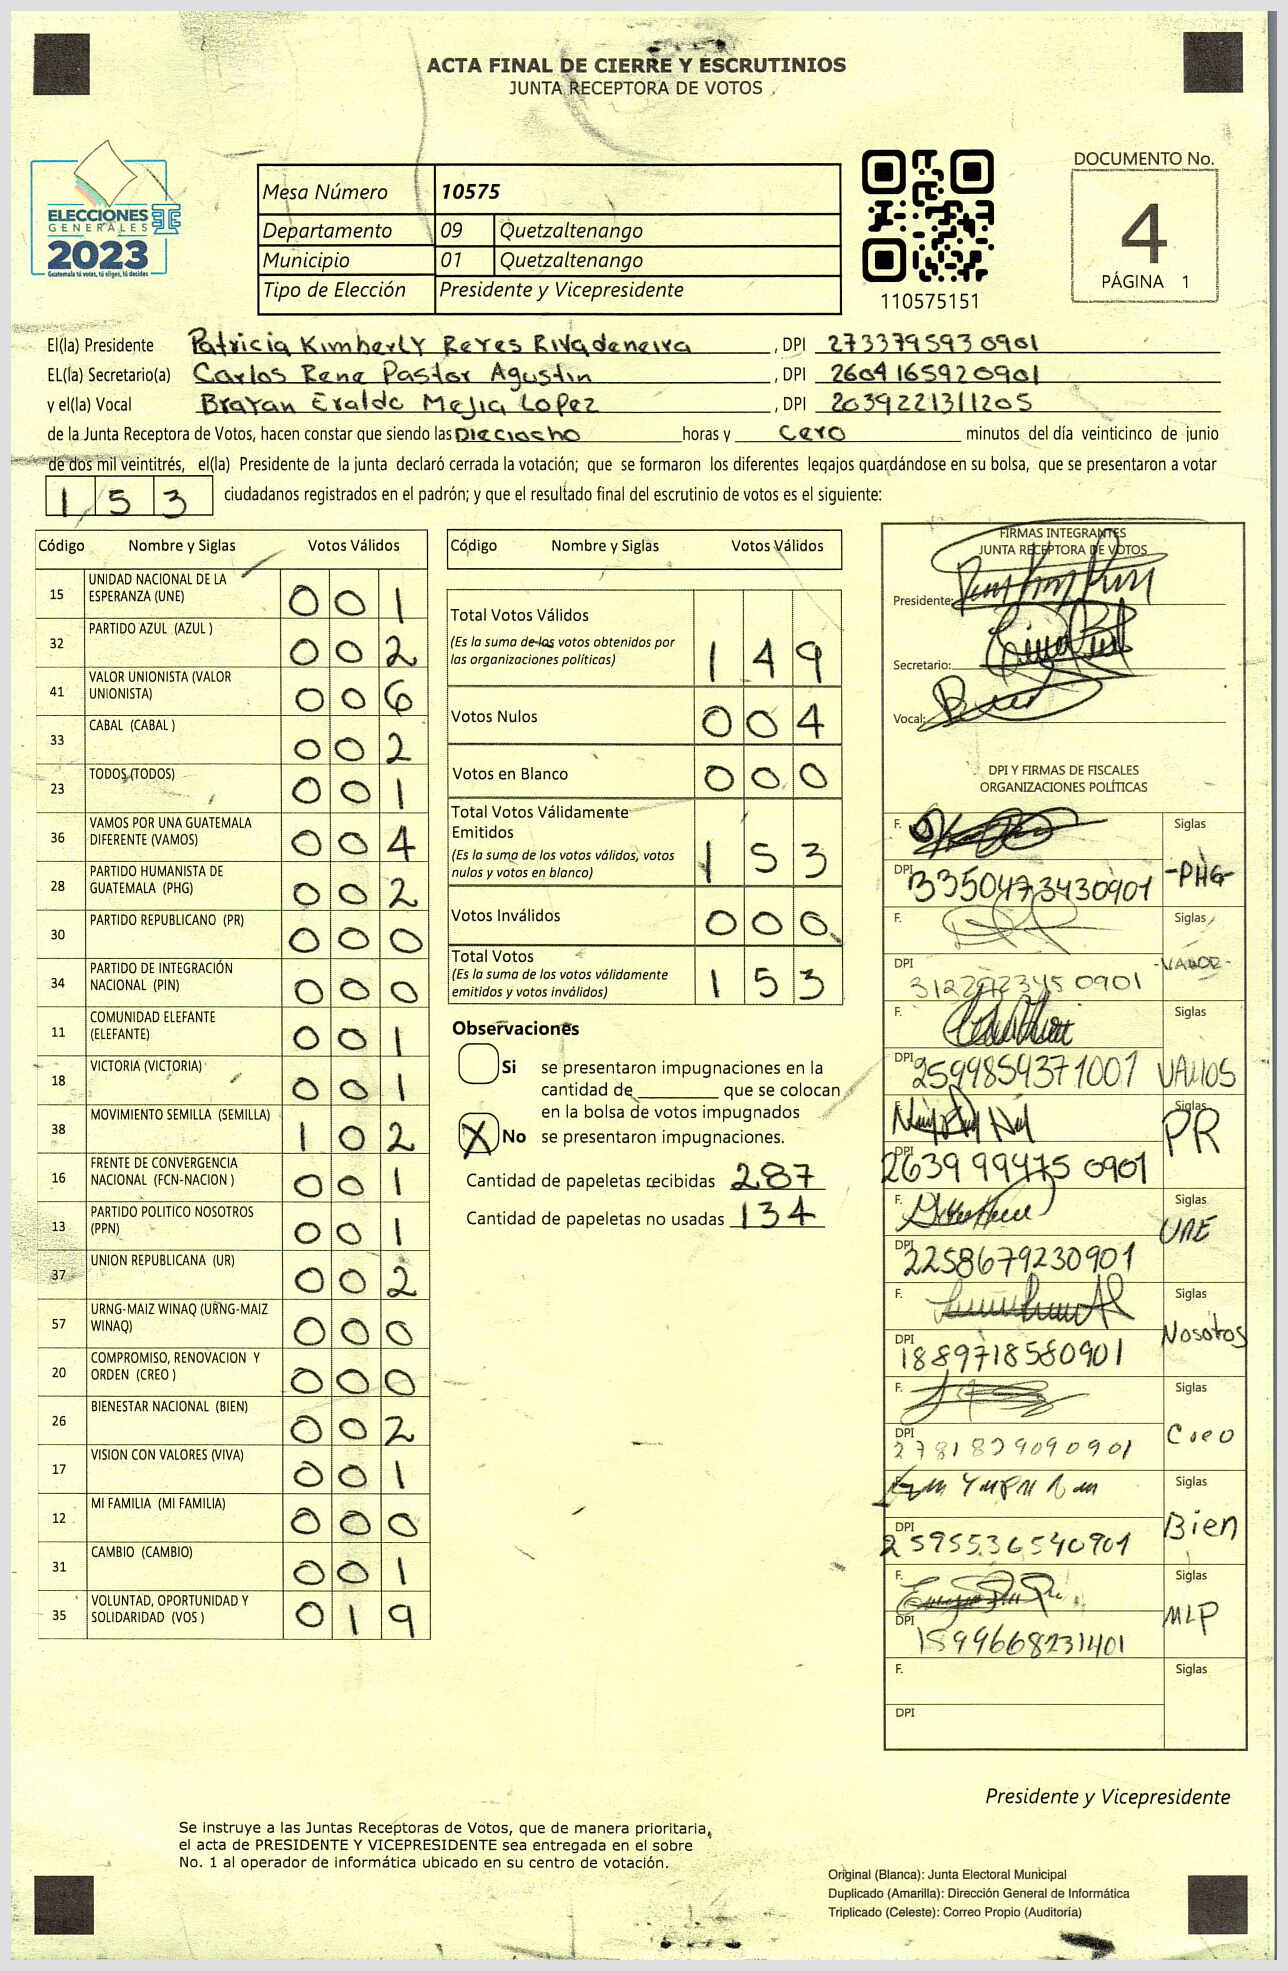 ACTA FINAL DE CIERRE Y ESCRUTINIOS
JUNTA RECEPTORA DE VOTOS
ELECCIONES
GENERALES
2023
Guatemala tú votas, tú eliges, tú decides
Mesa Número 10575
Departamento 09 Quetzaltenango
Municipio 01 Quetzaltenango
Tipo de Elección Presidente y Vicepresidente
110575151
DOCUMENTO No.
4
PÁGINA 1
El(la) Presidente Patricia Kimberly Reyes Rivadeneira, DPI 2733795930901
EL(la) Secretario(a) Carlos Rene Pastor Agustin, DPI 2604165920901
y el(la) Vocal Brayan Eraldo Mejia Lopez, DPI 2039221311205
de la Junta Receptora de Votos, hacen constar que siendo las Dieciocho horas y Cero minutos del día veinticinco de junio
de dos mil veintitrés, el(la) Presidente de la junta declaró cerrada la votación; que se formaron los diferentes legajos guardándose en su bolsa, que se presentaron a votar
153 ciudadanos registrados en el padrón; y que el resultado final del escrutinio de votos es el siguiente:
Código Nombre y Siglas Votos Válidos
15 UNIDAD NACIONAL DE LA ESPERANZA (UNE) 001
32 PARTIDO AZUL (AZUL ) 002
41 VALOR UNIONISTA (VALOR UNIONISTA) 006
33 CABAL (CABAL ) 002
23 TODOS (TODOS) 001
36 VAMOS POR UNA GUATEMALA DIFERENTE (VAMOS) 004
28 PARTIDO HUMANISTA DE GUATEMALA (PHG) 002
30 PARTIDO REPUBLICANO (PR) 000
34 PARTIDO DE INTEGRACIÓN NACIONAL (PIN) 000
11 COMUNIDAD ELEFANTE (ELEFANTE) 001
18 VICTORIA (VICTORIA) 001
38 MOVIMIENTO SEMILLA (SEMILLA) 102
16 FRENTE DE CONVERGENCIA NACIONAL (FCN-NACION ) 001
13 PARTIDO POLITICO NOSOTROS (PPN) 001
37 UNION REPUBLICANA (UR) 002
57 URNG-MAIZ WINAQ (URNG-MAIZ WINAQ) 000
20 COMPROMISO, RENOVACION Y ORDEN (CREO ) 000
26 BIENESTAR NACIONAL (BIEN) 002
17 VISION CON VALORES (VIVA) 001
12 MI FAMILIA (MI FAMILIA) 000
31 CAMBIO (CAMBIO) 001
35 VOLUNTAD, OPORTUNIDAD Y SOLIDARIDAD (VOS ) 019
Código Nombre y Siglas Votos Válidos
Total Votos Válidos
(Es la suma de los votos obtenidos por las organizaciones políticas) 149
Votos Nulos 004
Votos en Blanco 000
Total Votos Válidamente Emitidos
(Es la suma de los votos válidos, votos nulos y votos en blanco) 153
Votos Inválidos 000
Total Votos
(Es la suma de los votos válidamente emitidos y votos inválidos) 153
Observaciones
Si se presentaron impugnaciones en la
cantidad de que se colocan
en la bolsa de votos impugnados
X No se presentaron impugnaciones.
Cantidad de papeletas recibidas 287
Cantidad de papeletas no usadas 134
FIRMAS INTEGRANTES
JUNTA RECEPTORA DE VOTOS
Presidente:
Secretario:
Vocal:
DPI Y FIRMAS DE FISCALES
ORGANIZACIONES POLÍTICAS
F. Siglas
DPI 3350473430901 -PHG-
F. Siglas
DPI 3122923450901 -VALOR-
F. Siglas
DPI 2599859371001 VAMOS
F. Siglas
DPI 2639994750901 PR
F. Siglas
DPI 2258679230901 UNE
F. Siglas
DPI 1889718580901 Nosotros
F. Siglas
DPI 2781829090901 Creo
Siglas
DPI 2595536540901 Bien
F. Siglas
DPI 1599668231401 MLP
F. Siglas
DPI
Presidente y Vicepresidente
Se instruye a las Juntas Receptoras de Votos, que de manera prioritaria,
el acta de PRESIDENTE Y VICEPRESIDENTE sea entregada en el sobre
No. 1 al operador de informática ubicado en su centro de votación.
Original (Blanca): Junta Electoral Municipal
Duplicado (Amarilla): Dirección General de Informática
Triplicado (Celeste): Correo Propio (Auditoría)